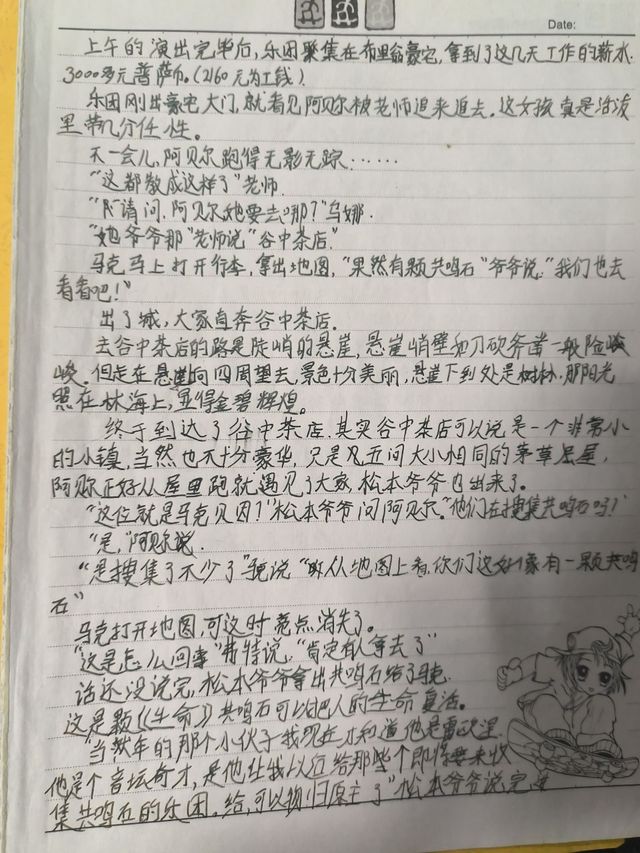 Date:
上午的演出完毕后,乐团聚集在布里翁豪宅,拿到了这几天工作的薪水.
3000多元普萨币。(2160元为工钱)
乐团刚出豪宅大门,就看见阿贝尔被老师追来追去。这女孩真是活泼
里带几分任性。
不一会儿,阿贝尔跑得无影无踪……
“这都教成这样了”老师.
“请问,阿贝尔她要去哪?”乌娜.
“她爷爷那”老师说“谷中茶店.”
马克马上打开行李,拿出地图,“果然有颗共鸣石”爷爷说.“我们也去
看看吧!”
出了城,大家自奔谷中茶店.
去谷中茶店的路是陡峭的悬崖,悬崖峭壁如刀砍斧凿一般险峻
峻.但走在悬崖向四周望去,景色十分美丽,悬崖下到处是树林.那阳光
照在林海上,显得金碧辉煌。
终于到达了谷中茶店.其实谷中茶店可以说是一个非常小
的小镇,当然也不十分豪华,只是几五间大小相同的茅草屋屋,
阿贝尔正好从屋里跑就遇见了大家,松本爷爷也出来了。
“这位就是马克贝因?”松本爷爷问阿贝尔.“他们在搜集共鸣石吗?”
“是,”阿贝尔说.
“是搜集了不少了”说“从地图上看.你们这好像有一颗共鸣
石”
马克打开地图,可这时亮点消失了。
“这是怎么回事”弗特说,“肯定有人拿去了”
话还没说完,松本爷爷拿出共鸣石给了马克.
这是颗《生命》共鸣石可以把人的生命复活。
“当然年的那个小伙子我现在才知道他是雷欧里
他是个音坛奇才,是他让我以后给那些个即将要来收
集共鸣石的乐团.给,可以物归原主了”松本爷爷说完,